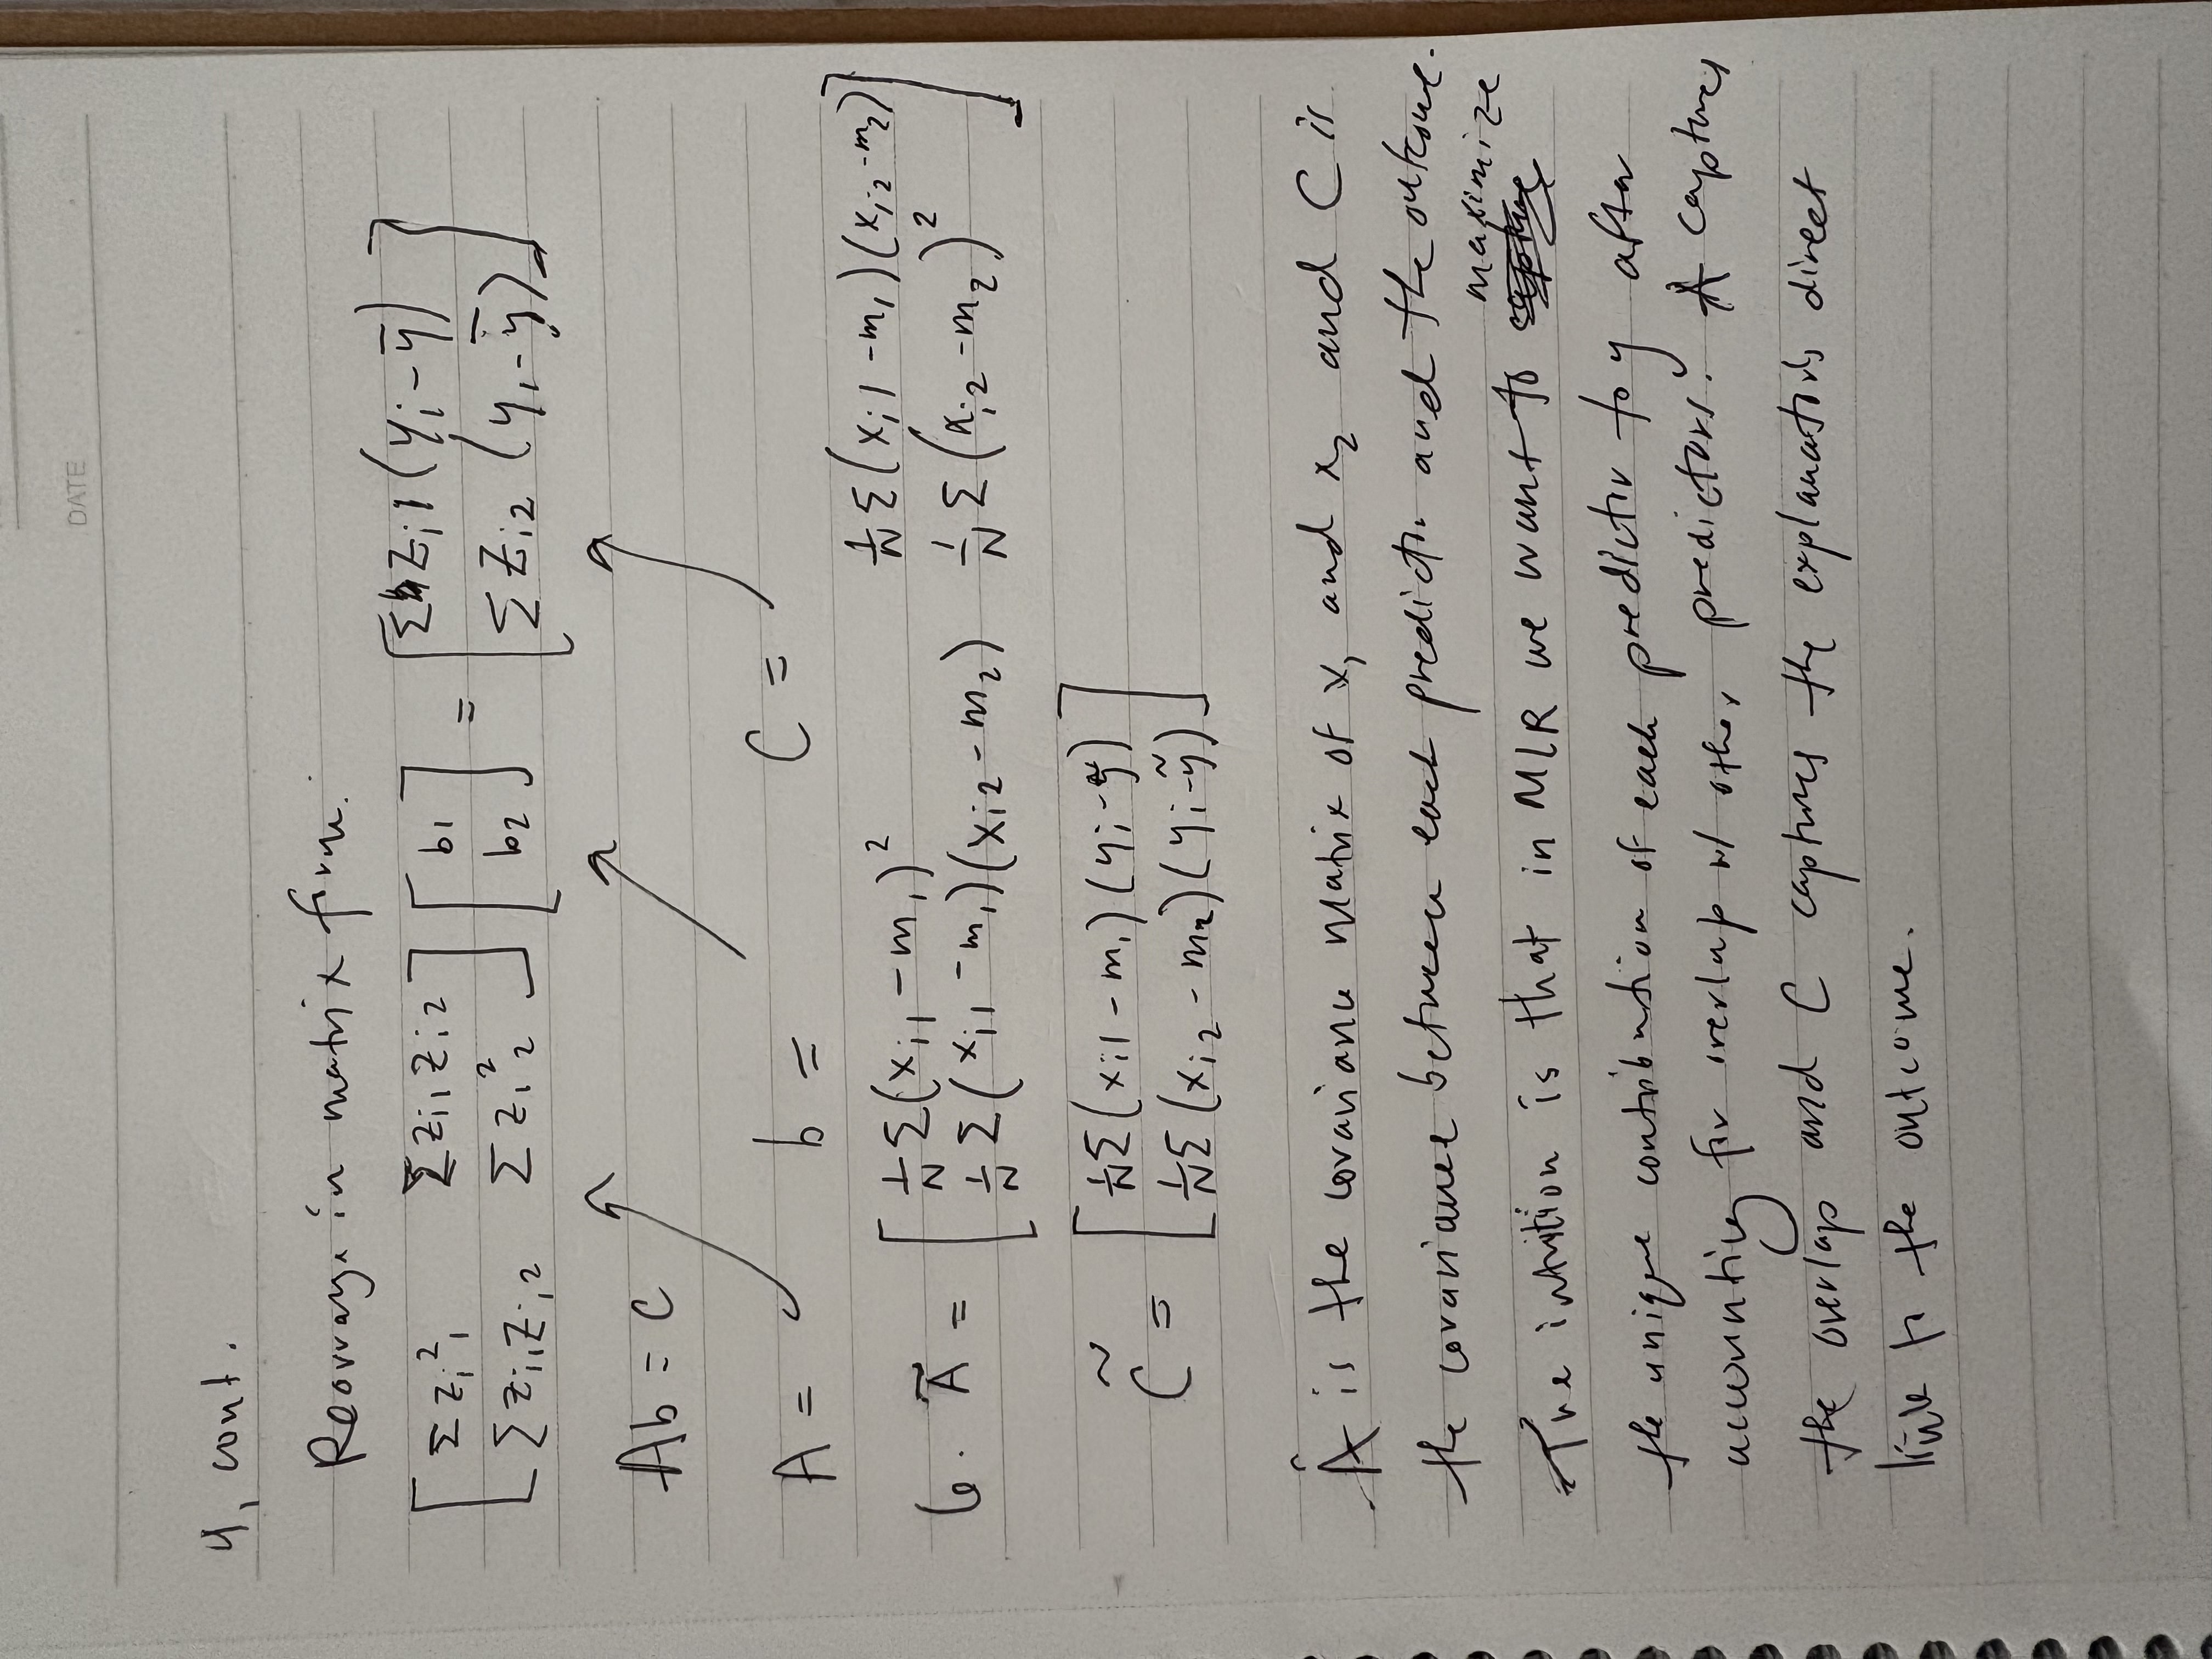 DATE
4, cont.
Rearrange in matrix form.
[ Σ z_i1^2  Σ z_i1 z_i2 ] [ b1 ] = [ Σ z_i1 (y_i - ȳ) ]
[ Σ z_i1 z_i2  Σ z_i2^2 ] [ b2 ]   [ Σ z_i2 (y_i - ȳ) ]
Ab = C
A =  b =  C =
6. Ã = [ 1/N Σ(x_i1 - m_1)^2  1/N Σ(x_i1 - m_1)(x_i2 - m_2) ]
[ 1/N Σ(x_i1 - m_1)(x_i2 - m_2)  1/N Σ(x_i2 - m_2)^2 ]
C̃ = [ 1/N Σ(x_i1 - m_1)(y_i - ỹ) ]
[ 1/N Σ(x_i2 - m_2)(y_i - ỹ) ]
Â is the covariance matrix of x_1 and x_2 and C is
the covariance between each predictor and the outcome.
maximize
The intuition is that in MLR we want to
the unique contribution of each predictor to y after
accounting for overlap w/ other predictors. A captures
the overlap and C captures the explanator's direct
link to the outcome.